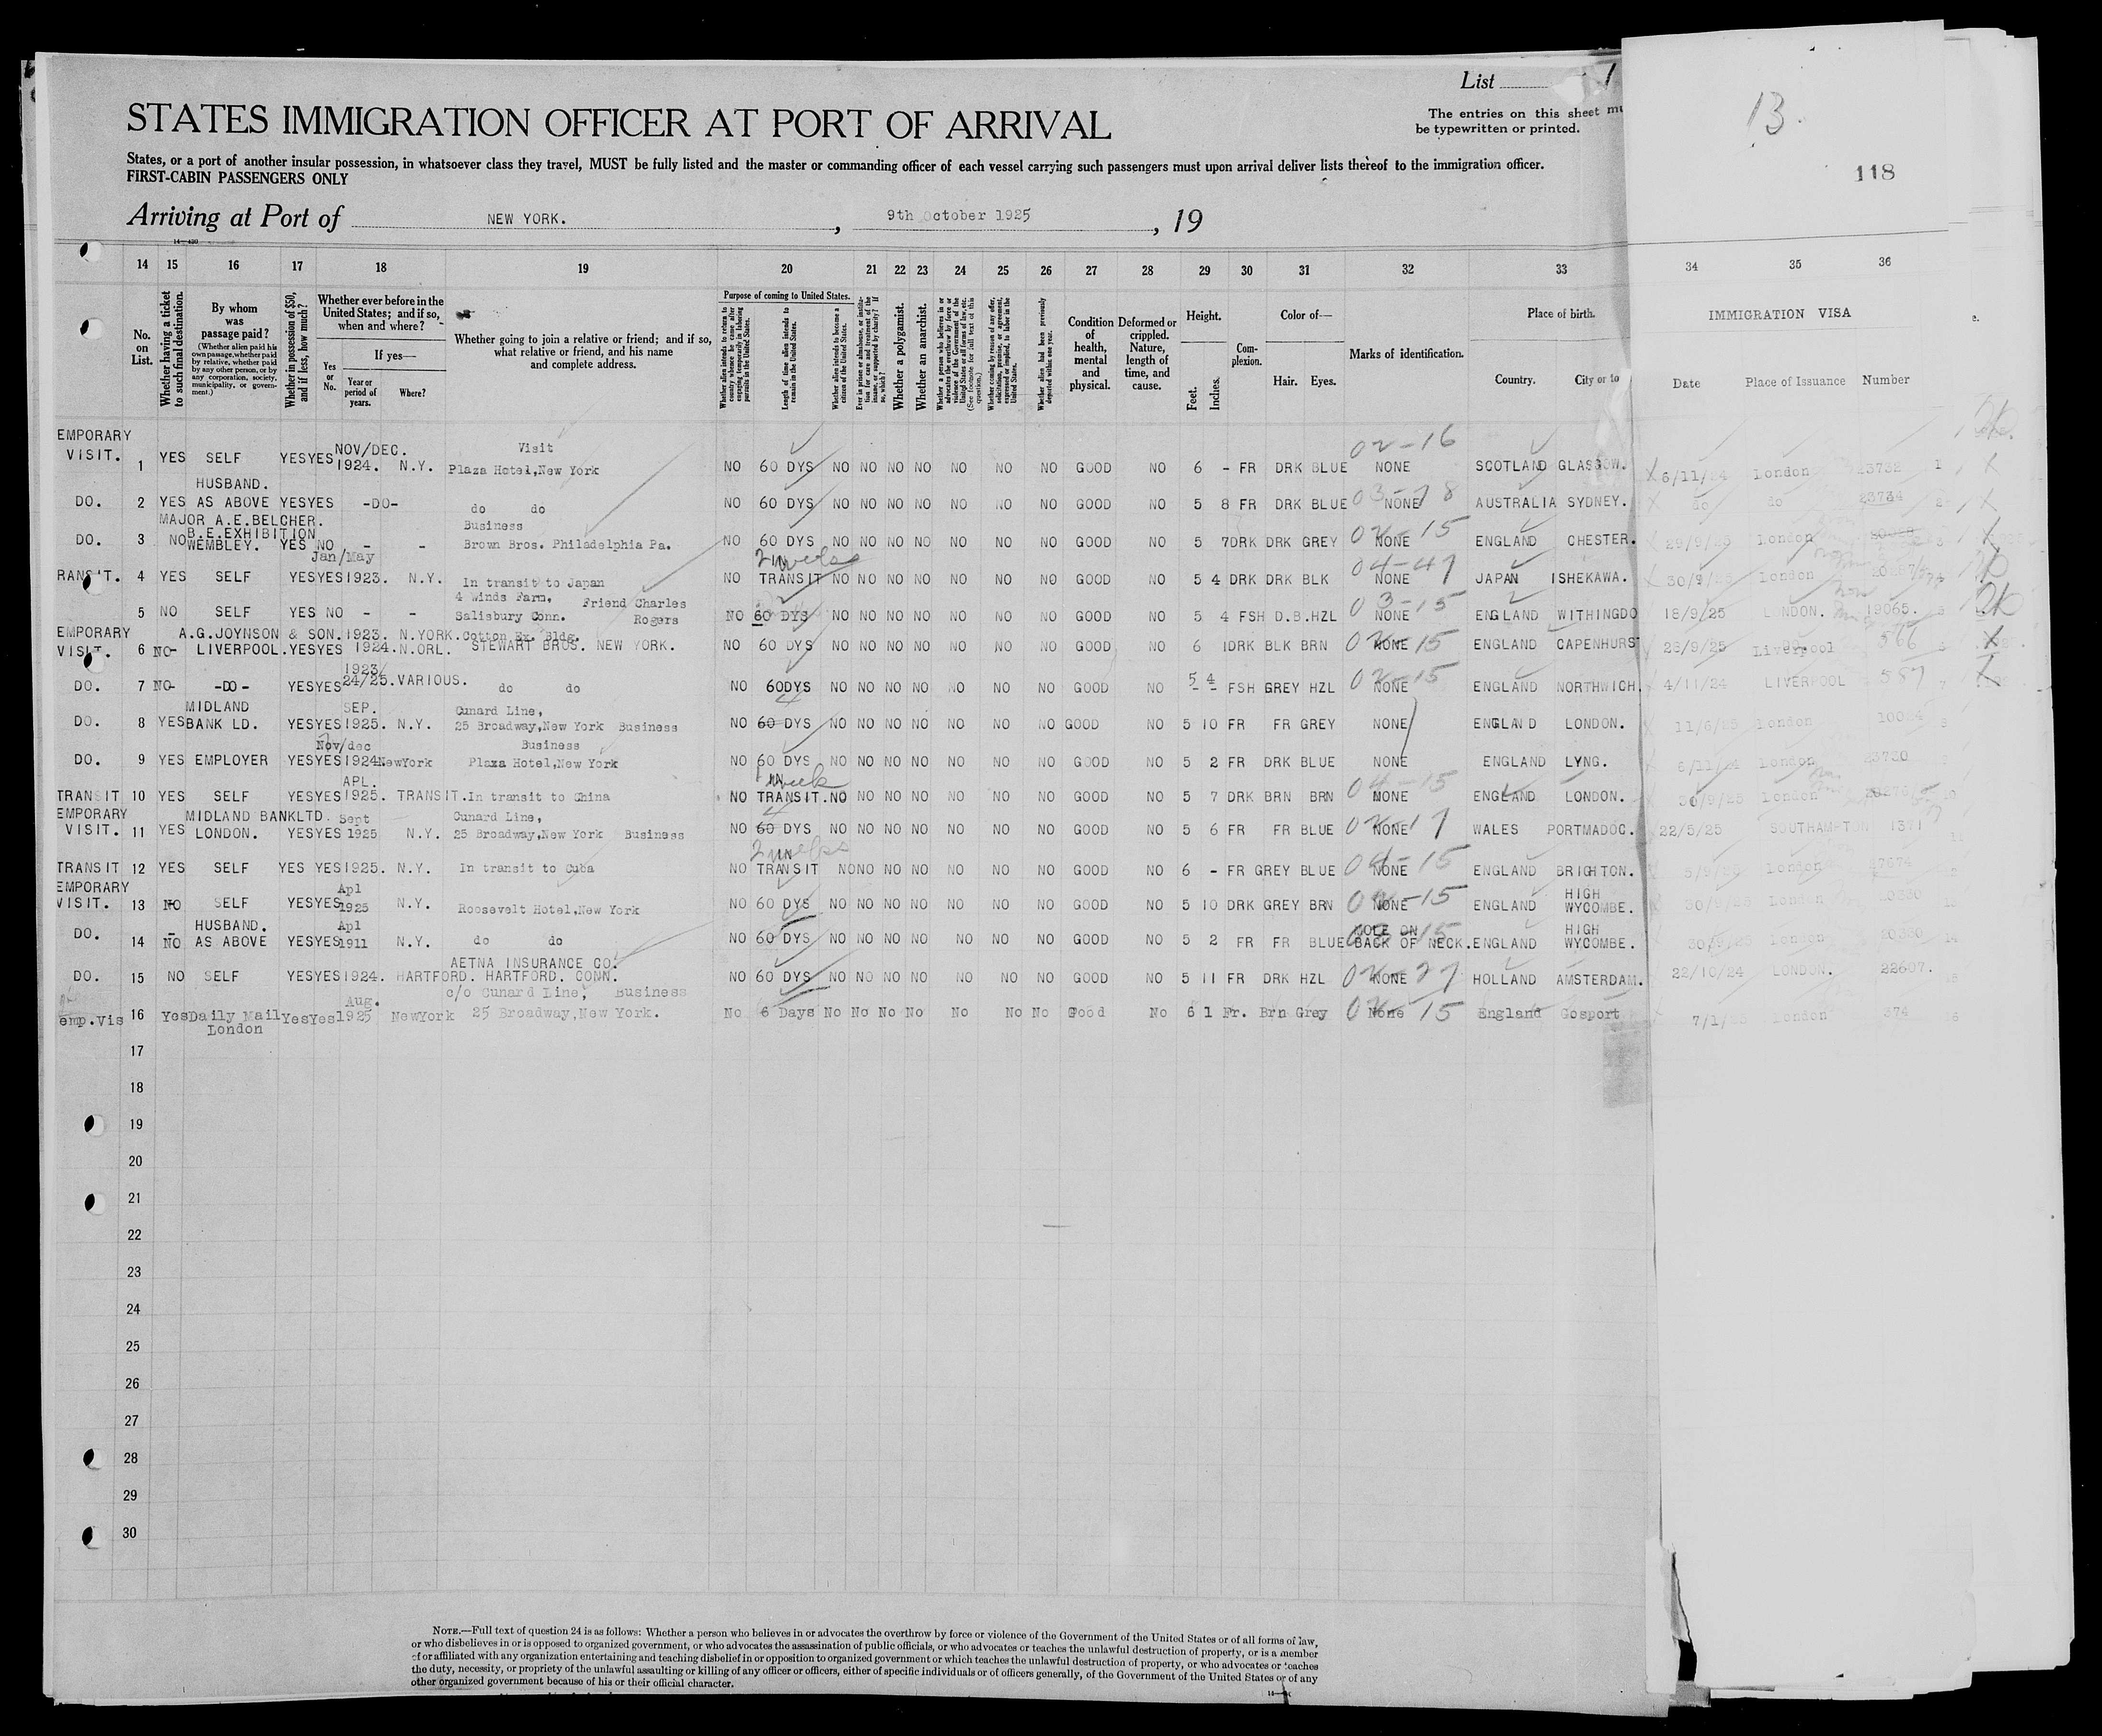 List 1
STATES IMMIGRATION OFFICER AT PORT OF ARRIVAL
The entries on this sheet mu
be typewritten or printed.
13.
118
States, or a port of another insular possession, in whatsoever class they travel, MUST be fully listed and the master or commanding officer of each vessel carrying such passengers must upon arrival deliver lists thereof to the immigration officer.
FIRST-CABIN PASSENGERS ONLY
Arriving at Port of NEW YORK. , 9th October 1925 , 19
14 15 16 17 18 19 20 21 22 23 24 25 26 27 28 29 30 31 32 33 34 35 36
No. on List.
Whether having a ticket to such final destination.
By whom was passage paid?
(Whether alien paid his own passage, whether paid by relative, whether paid by any other person, or by any corporation, society, municipality, or government.)
Whether in possession of $50, and if less, how much?
Whether ever before in the United States; and if so, when and where?
Yes or No.
If yes—
Year or period of years.
Where?
Whether going to join a relative or friend; and if so, what relative or friend, and his name and complete address.
Purpose of coming to United States.
Whether alien intends to return to country whence he came after engaging temporarily in laboring pursuits in the United States.
Length of time alien intends to remain in the United States.
Whether alien intends to become a citizen of the United States.
Ever in prison or almshouse, or institution for care and treatment of the insane, or supported by charity? If so, which?
Whether a polygamist.
Whether an anarchist.
Whether a person who believes in or advocates the overthrow by force or violence of the Government of the United States or all forms of law, etc. (See footnote for full text of this question.)
Whether coming by reason of any offer, solicitation, promise, or agreement, expressed or implied, to labor in the United States.
Whether alien had been previously deported within one year.
Condition of health, mental and physical.
Deformed or crippled. Nature, length of time, and cause.
Height.
Feet.
Inches.
Complexion.
Color of—
Hair. Eyes.
Marks of identification.
Place of birth.
Country. City or to
IMMIGRATION VISA
Date Place of Issuance Number
EMPORARY VISIT. 1 YES SELF YES YES NOV/DEC. 1924. N.Y. Visit Plaza Hotel,New York NO 60 DYS NO NO NO NO NO NO NO GOOD NO 6 - FR DRK BLUE NONE 02-16 SCOTLAND GLASGOW. 6/11/24 London 23732 1
DO. 2 YES HUSBAND. AS ABOVE YES YES -DO- do do NO 60 DYS NO NO NO NO NO NO NO GOOD NO 5 8 FR DRK BLUE NONE AUSTRALIA SYDNEY. do do 23734 2
DO. 3 NO MAJOR A.E.BELCHER. B.E.EXHIBITION WEMBLEY. YES NO - - Business Brown Bros. Philadelphia Pa. NO 60 DYS NO NO NO NO NO NO NO GOOD NO 5 7 DRK DRK GREY NONE 02-15 ENGLAND CHESTER. 29/9/25 London 3
RANSIT. 4 YES SELF YES YES Jan/May 1923. N.Y. In transit to Japan NO 2 weeks IN TRANSIT NO NO NO NO NO NO NO GOOD NO 5 4 DRK DRK BLK NONE 04-47 JAPAN ISHEKAWA. 30/9/25 London
5 NO SELF YES NO - - 4 Winds Farm, Salisbury Conn. Friend Charles Rogers NO 60 DYS NO NO NO NO NO NO NO GOOD NO 5 4 FSH D.B. HZL NONE 03-15 ENGLAND WITHINGDO 18/9/25 LONDON. 19065.
EMPORARY VISIT. 6 NO- A.G.JOYNSON & SON. LIVERPOOL. YES YES 1923. N.YORK. 1924. N.ORL. Cotton Ex. Bldg. STEWART BROS. NEW YORK. NO 60 DYS NO NO NO NO NO NO NO GOOD NO 6 1 DRK BLK BRN NONE 02-15 ENGLAND CAPENHURST 28/9/25 Liverpool 566
DO. 7 NO- -DO- YES YES 1923/24/25. VARIOUS. do do NO 60DYS NO NO NO NO NO NO NO GOOD NO 5 4 FSH GREY HZL NONE 02-15 ENGLAND NORTHWICH. 4/11/24 LIVERPOOL 557 7
DO. 8 YES MIDLAND BANK LD. YES YES SEP. 1925. N.Y. Cunard Line, 25 Broadway,New York Business NO 4 60 DYS NO NO NO NO NO NO NO GOOD NO 5 10 FR FR GREY NONE ENGLAND LONDON. 11/6/25 London
DO. 9 YES EMPLOYER YES YES Nov/dec 1924 NewYork Business Plaza Hotel,New York NO 60 DYS NO NO NO NO NO NO NO GOOD NO 5 2 FR DRK BLUE NONE ENGLAND LYNG. 6/11/24 London
TRANSIT 10 YES SELF YES YES APL. 1925. TRANSIT. In transit to China NO 1 week IN TRANSIT. NO NO NO NO NO NO NO GOOD NO 5 7 DRK BRN BRN NONE 04-15 ENGLAND LONDON. 30/9/25 London 10
EMPORARY VISIT. 11 YES MIDLAND BANKLTD. LONDON. YES YES Sept 1925 N.Y. Cunard Line, 25 Broadway,New York Business NO 4 60 DYS NO NO NO NO NO NO NO GOOD NO 5 6 FR FR BLUE NONE 02-17 WALES PORTMADOC. 22/5/25 SOUTHAMPTON 1371 11
TRANSIT 12 YES SELF YES YES 1925. N.Y. In transit to Cuba NO 2 weeks IN TRANSIT NO NO NO NO NO NO NO GOOD NO 6 - FR GREY BLUE NONE 04-15 ENGLAND BRIGHTON. London
EMPORARY VISIT. 13 NO SELF YES YES Apl 1925 N.Y. Roosevelt Hotel,New York NO 60 DYS NO NO NO NO NO NO NO GOOD NO 5 10 DRK GREY BRN NONE 02-15 ENGLAND HIGH WYCOMBE. 30/9/25 London 13
DO. 14 NO HUSBAND. AS ABOVE YES YES Apl 1911 N.Y. do do NO 60 DYS NO NO NO NO NO NO NO GOOD NO 5 2 FR FR BLUE MOLE ON BACK OF NECK. ENGLAND HIGH WYCOMBE. 30/9/25 London 14
DO. 15 NO SELF YES YES 1924. HARTFORD. AETNA INSURANCE CO. HARTFORD. CONN. NO 60 DYS NO NO NO NO NO NO NO GOOD NO 5 11 FR DRK HZL NONE 02-27 HOLLAND AMSTERDAM. 22/10/24 LONDON. 22607.
emp.Vis 16 Yes Daily Mail London Yes Yes Aug. 1925 NewYork c/o Cunard Line, Business 25 Broadway,New York. No 6 Days No No No No No No No Good No 6 1 Fr. Brn Grey None 02-15 England Gosport London 374
17
18
19
20
21
22
23
24
25
26
27
28
29
30
NOTE.—Full text of question 24 is as follows: Whether a person who believes in or advocates the overthrow by force or violence of the Government of the United States or of all forms of law,
or who disbelieves in or is opposed to organized government, or who advocates the assassination of public officials, or who advocates or teaches the unlawful destruction of property, or is a member
of or affiliated with any organization entertaining and teaching disbelief in or opposition to organized government or which teaches the unlawful destruction of property, or who advocates or teaches
the duty, necessity, or propriety of the unlawful assaulting or killing of any officer or officers, either of specific individuals or of officers generally, of the Government of the United States or of any
other organized government because of his or their official character.